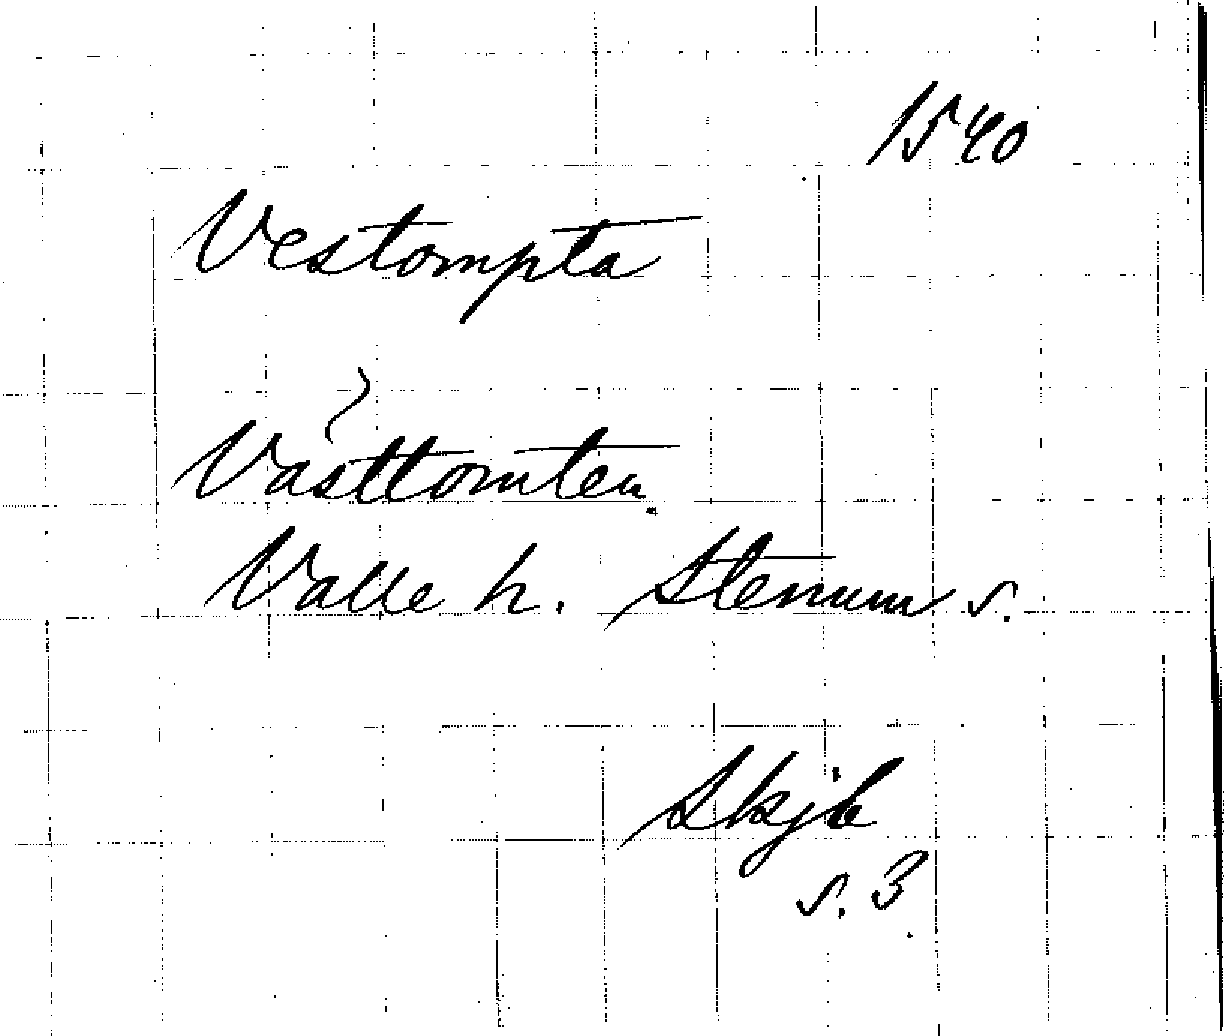 1540
Vestompta
Västtomten
Valle h. Stenum s.
Skjb
s. 3